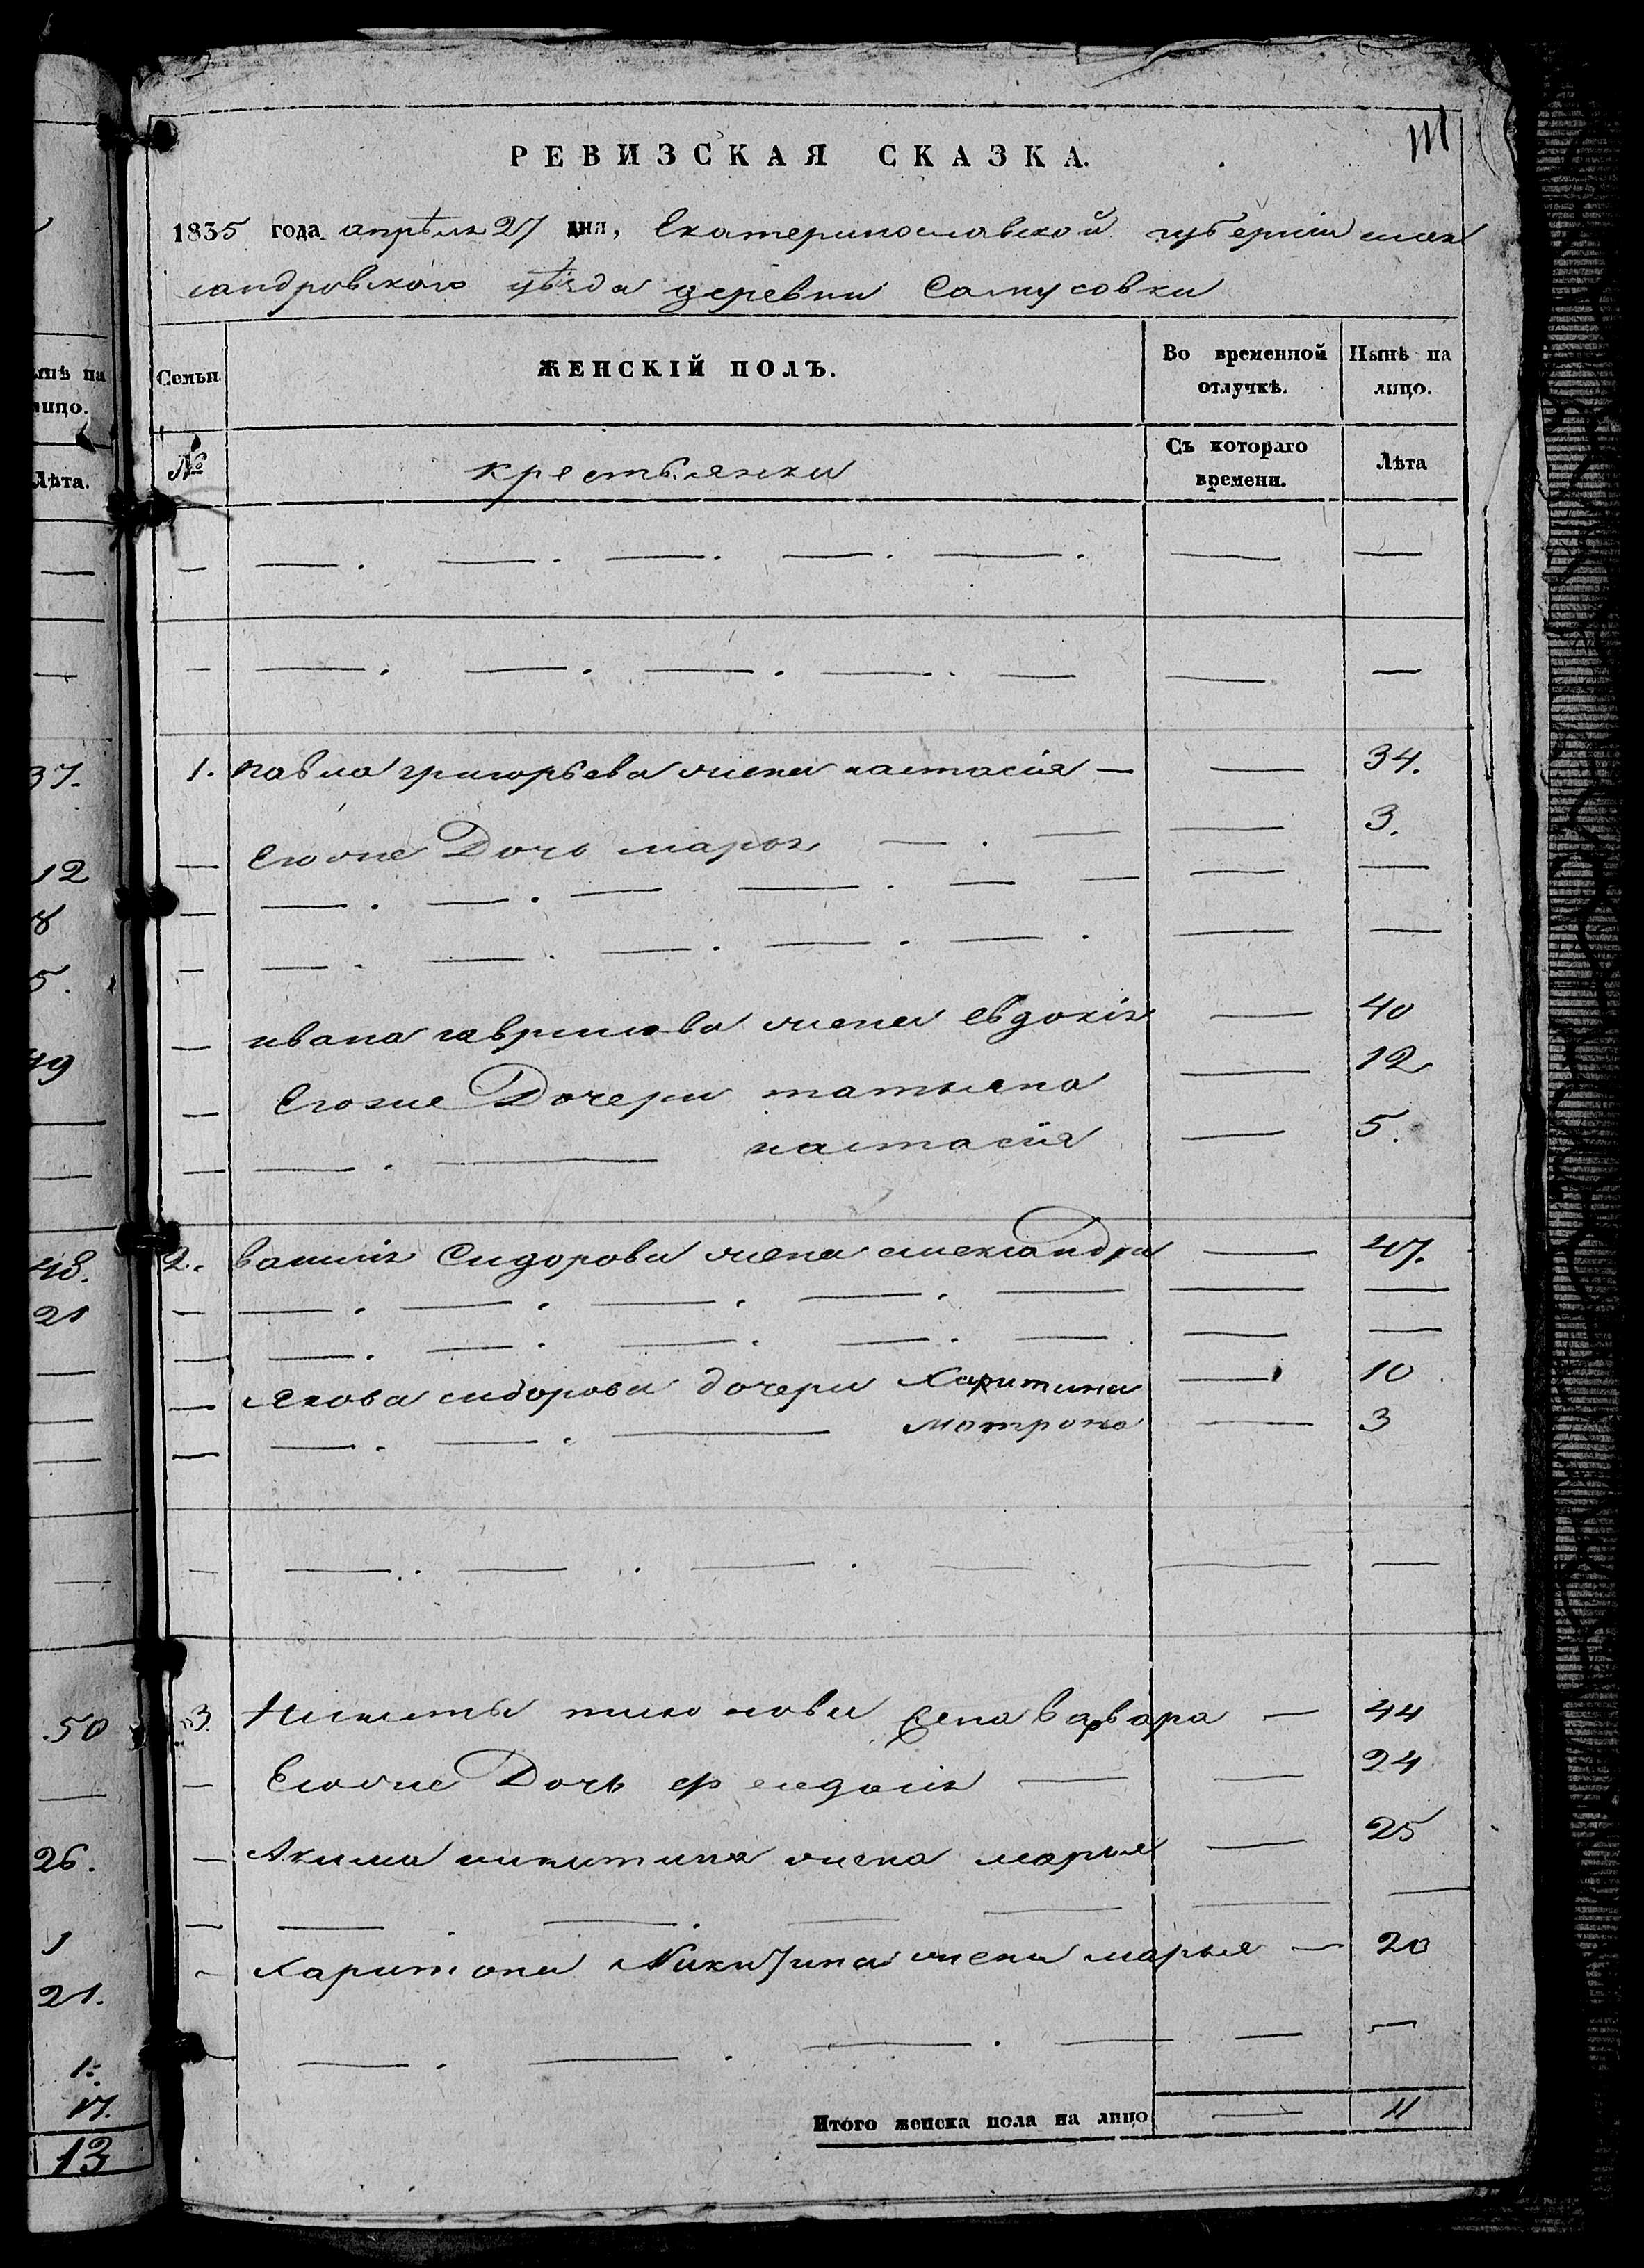 111
РЕВИЗСКАЯ СКАЗКА.
1835 года апрѣля 27 дня, Екатеринославской губерніи алек
сандровского уѣзда деревни Самусовки
Семьи
ЖЕНСКІЙ ПОЛЪ.
Во временной отлучкѣ.
Нынѣ на лицо.
№
крестьянки
Съ котораго времени.
Лѣта
1. павла григорьева жена настасія — — 34.
Егоже Дочь марья — . — — 3.
ивана гаврилова жена евдокія — 40
Егоже Дочери татьяна — 12
— . — настасія — 5.
2. василія Сидорова жена александра — 47.
якова сидорова дочери Харитина — 10
— . — . — Матрона — 3
3. Никиты жена варвара — 44
Егоже Дочь — — 24
Акима никитина жена марья — 25
Харитона Никитина жена марья — 20
Итого женска пола на лицо — 11
нынѣ на
лицо.
Лѣта.
37.
12
8
5.
49
48.
21
50
26.
1
21.
1.
17.
13